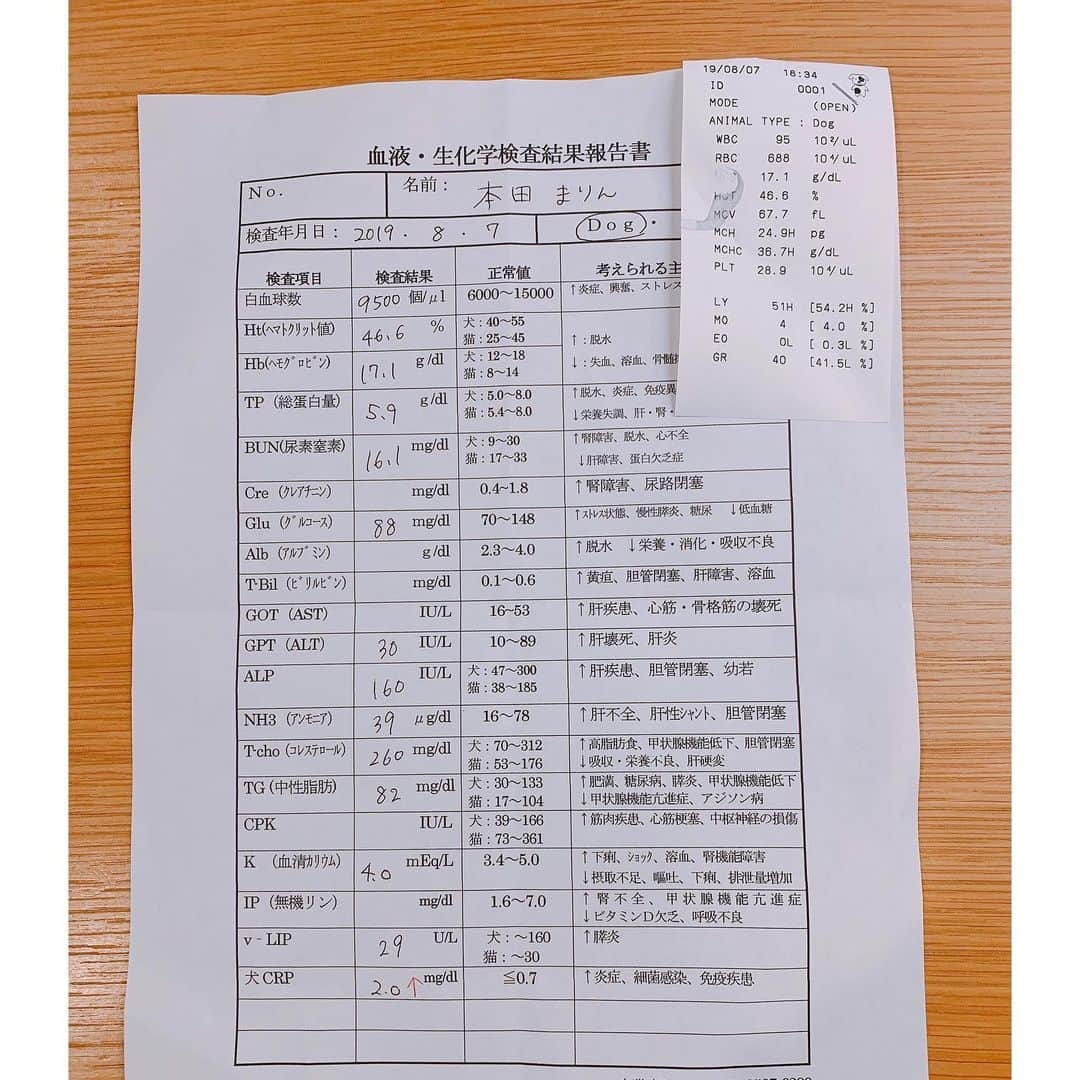 19/08/07 16:34
ID 0001
MODE (OPEN)
ANIMAL TYPE : Dog
WBC 95 10²/uL
RBC 688 10⁴/uL
17.1 g/dL
HCT 46.6 %
MCV 67.7 fL
MCH 24.9H pg
MCHC 36.7H g/dL
PLT 28.9 10⁴/uL
LY 51H [54.2H %]
MO 4 [ 4.0 %]
EO 0L [ 0.3L %]
GR 40 [41.5L %]
血液・生化学検査結果報告書
No. 名前： 本田 まりん
検査年月日： 2019 . 8 . 7 Dog・
検査項目 検査結果 正常値 考えられる主
白血球数 9500 個/μl 6000～15000 ↑炎症、興奮、ストレス
Ht(ﾍﾏﾄｸﾘｯﾄ値) 46.6 % 犬：40～55
猫：25～45
↑：脱水
Hb(ﾍﾓｸﾞﾛﾋﾞﾝ) 17.1 g/dl 犬：12～18
猫：8～14
↓：失血、溶血、骨髄
TP（総蛋白量） 5.9 g/dl 犬：5.0～8.0 ↑脱水、炎症、免疫異
猫：5.4～8.0 ↓栄養失調、肝・腎・
BUN(尿素窒素) 16.1 mg/dl 犬：9～30 ↑腎障害、脱水、心不全
猫：17～33 ↓肝障害、蛋白欠乏症
Cre（ｸﾚｱﾁﾆﾝ） mg/dl 0.4～1.8 ↑腎障害、尿路閉塞
Glu（ｸﾞﾙｺｰｽ） 88 mg/dl 70～148 ↑ｽﾄﾚｽ状態、慢性膵炎、糖尿 ↓低血糖
Alb（ｱﾙﾌﾞﾐﾝ） g/dl 2.3～4.0 ↑脱水 ↓栄養・消化・吸収不良
T-Bil（ﾋﾞﾘﾙﾋﾞﾝ） mg/dl 0.1～0.6 ↑黄疸、胆管閉塞、肝障害、溶血
GOT（AST） IU/L 16~53 ↑肝疾患、心筋・骨格筋の壊死
GPT（ALT） 30 IU/L 10～89 ↑肝壊死、肝炎
ALP 160 IU/L 犬：47～300 ↑肝疾患、胆管閉塞、幼若
猫：38～185
NH3（ｱﾝﾓﾆｱ） 39 μg/dl 16～78 ↑肝不全、肝性ｼｬﾝﾄ、胆管閉塞
T-cho（ｺﾚｽﾃﾛｰﾙ） 260 mg/dl 犬：70～312 ↑高脂肪食、甲状腺機能低下、胆管閉塞
猫：53～176 ↓吸収・栄養不良、肝硬変
TG（中性脂肪） 82 mg/dl 犬：30～133 ↑肥満、糖尿病、膵炎、甲状腺機能低下
猫：17～104 ↓甲状腺機能亢進症、アジソン病
CPK IU/L 犬：39～166 ↑筋肉疾患、心筋梗塞、中枢神経の損傷
猫：73～361
K （血清ｶﾘｳﾑ） 4.0 mEq/L 3.4～5.0 ↑下痢、ｼｮｯｸ、溶血、腎機能障害
↓摂取不足、嘔吐、下痢、排泄量増加
IP（無機リン） mg/dl 1.6～7.0 ↑腎不全、甲状腺機能亢進症
↓ビタミンD欠乏、呼吸不良
v‐LIP 29 U/L 犬：～160 ↑膵炎
猫：～30
犬CRP 2.0↑ mg/dl ≦0.7 ↑炎症、細菌感染、免疫疾患